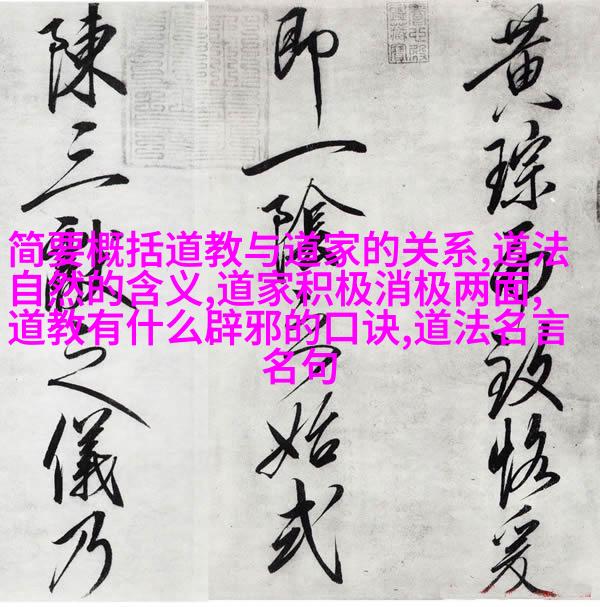 黄琮而致恪爰
即一陰分始式
陳三獻之儀乃
简要概括道教与道家的关系,道法
自然的含义,道家积极消极两面,
道教有什么辟邪的口诀,道法名言
名句